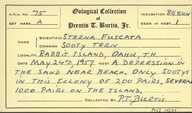 A.O.U. No. 75 Oological Collection
SET MARK A of Prentis T. Burtis, Jr. EGGS IN SET 1
Scientific NAME STERNA FUSCATA
Common NAME SOOTY TERN
Locality RABBIT ISLAND, OAHU, TH
Date MAY 24th, 1957. A DEPRESSION IN
THE SAND NEAR BEACH. ONLY SOOTYS
IN THIS COLONY OF 200 PAIRS, SEVERAL
1000 PAIRS ON THE ISLAND.
Collected by P.T. BURTIS